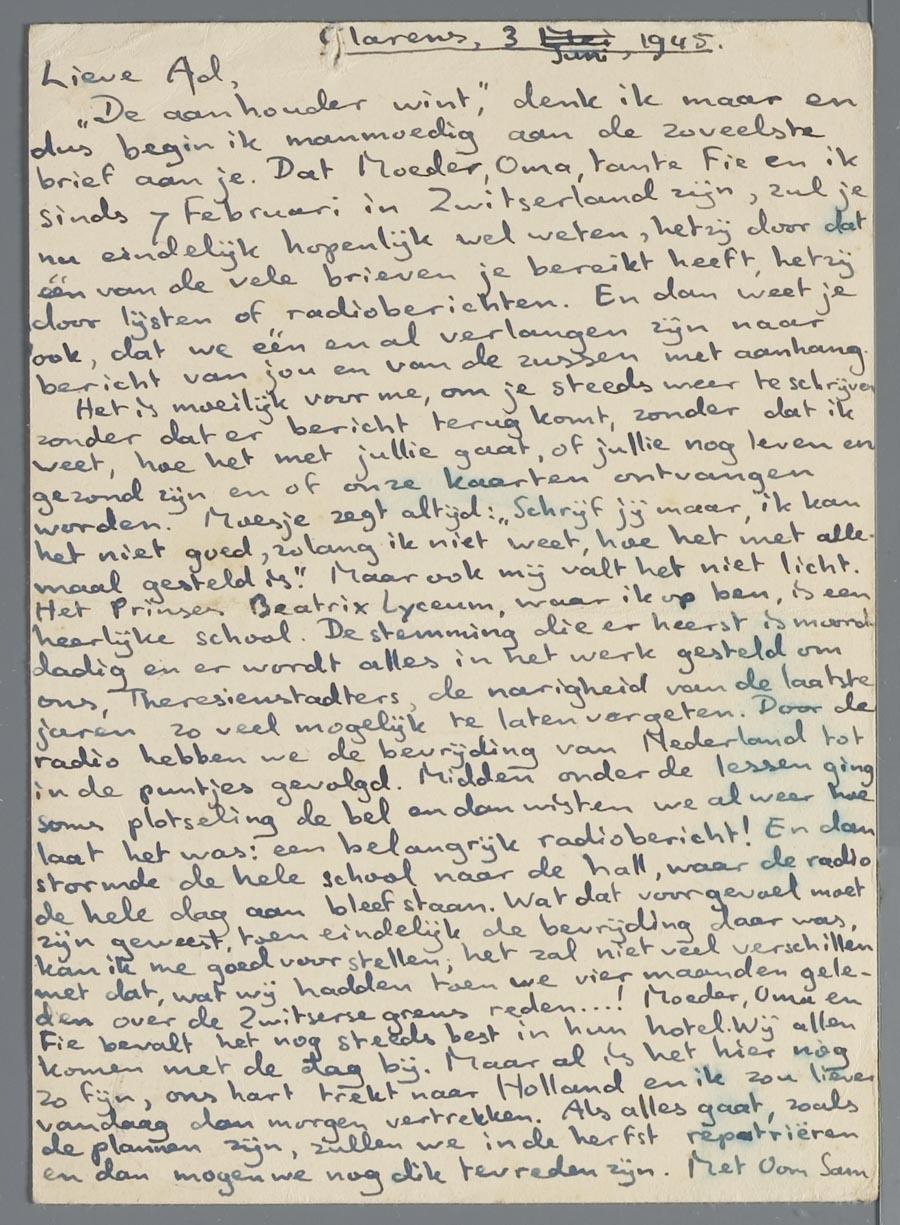 Glarens, 3 Mei Juni, 1945.
Lieve Ad,
„De aanhouder wint,” denk ik maar en
dus begin ik manmoedig aan de zoveelste
brief aan je. Dat Moeder, Oma, tante Fie en ik
sinds 7 Februari in Zwitserland zijn, zul je
nu eindelijk hopenlijk wel weten, hetzij door dat
één van de vele brieven je bereikt heeft, hetzij
door lijsten of radioberichten. En dan weet je
ook, dat we één en al verlangen zijn naar
bericht van jou en van de zussen met aanhang.
Het is moeilijk voor me, om je steeds meer te schrijven
zonder dat er bericht terug komt, zonder dat ik
weet, hoe het met jullie gaat, of jullie nog leven en
gezond zijn en of onze kaarten ontvangen
worden. Moesje zegt altijd: „Schrijf jij maar, ik kan
het niet goed, zolang ik niet weet, hoe het met alle-
maal gesteld is”. Maar ook mij valt het niet licht.
Het Prinses Beatrix Lyceum, waar ik op ben, is een
heerlijke school. De stemming die er heerst is moord-
dadig en er wordt alles in het werk gesteld om
ons, Theresienstadters, de narigheid van de laatste
jaren zo veel mogelijk te laten vergeten. Door de
radio hebben we de bevrijding van Nederland tot
in de puntjes gevolgd. Midden onder de lessen ging
soms plotseling de bel en dan wisten we al weer hoe
laat het was: een belangrijk radiobericht! En dan
stormde de hele school naar de hall, waar de radio
de hele dag aan bleef staan. Wat dat voor gevoel moet
zijn geweest, toen eindelijk de bevrijding daar was,
kan ik me goed voorstellen; het zal niet veel verschillen
met dat, wat wij hadden toen we vier maanden gele-
den over de Zwitserse grens reden...! Moeder, Oma en
Fie bevalt het nog steeds best in hun hotel. Wij allen
komen met de dag bij. Maar al is het hier nog
zo fijn, ons hart trekt naar Holland en ik zou liever
vandaag dan morgen vertrekken. Als alles gaat, zoals
de plannen zijn, zullen we in de herfst repatriëren
en dan mogen we nog dik tevreden zijn. Met Oom Sam